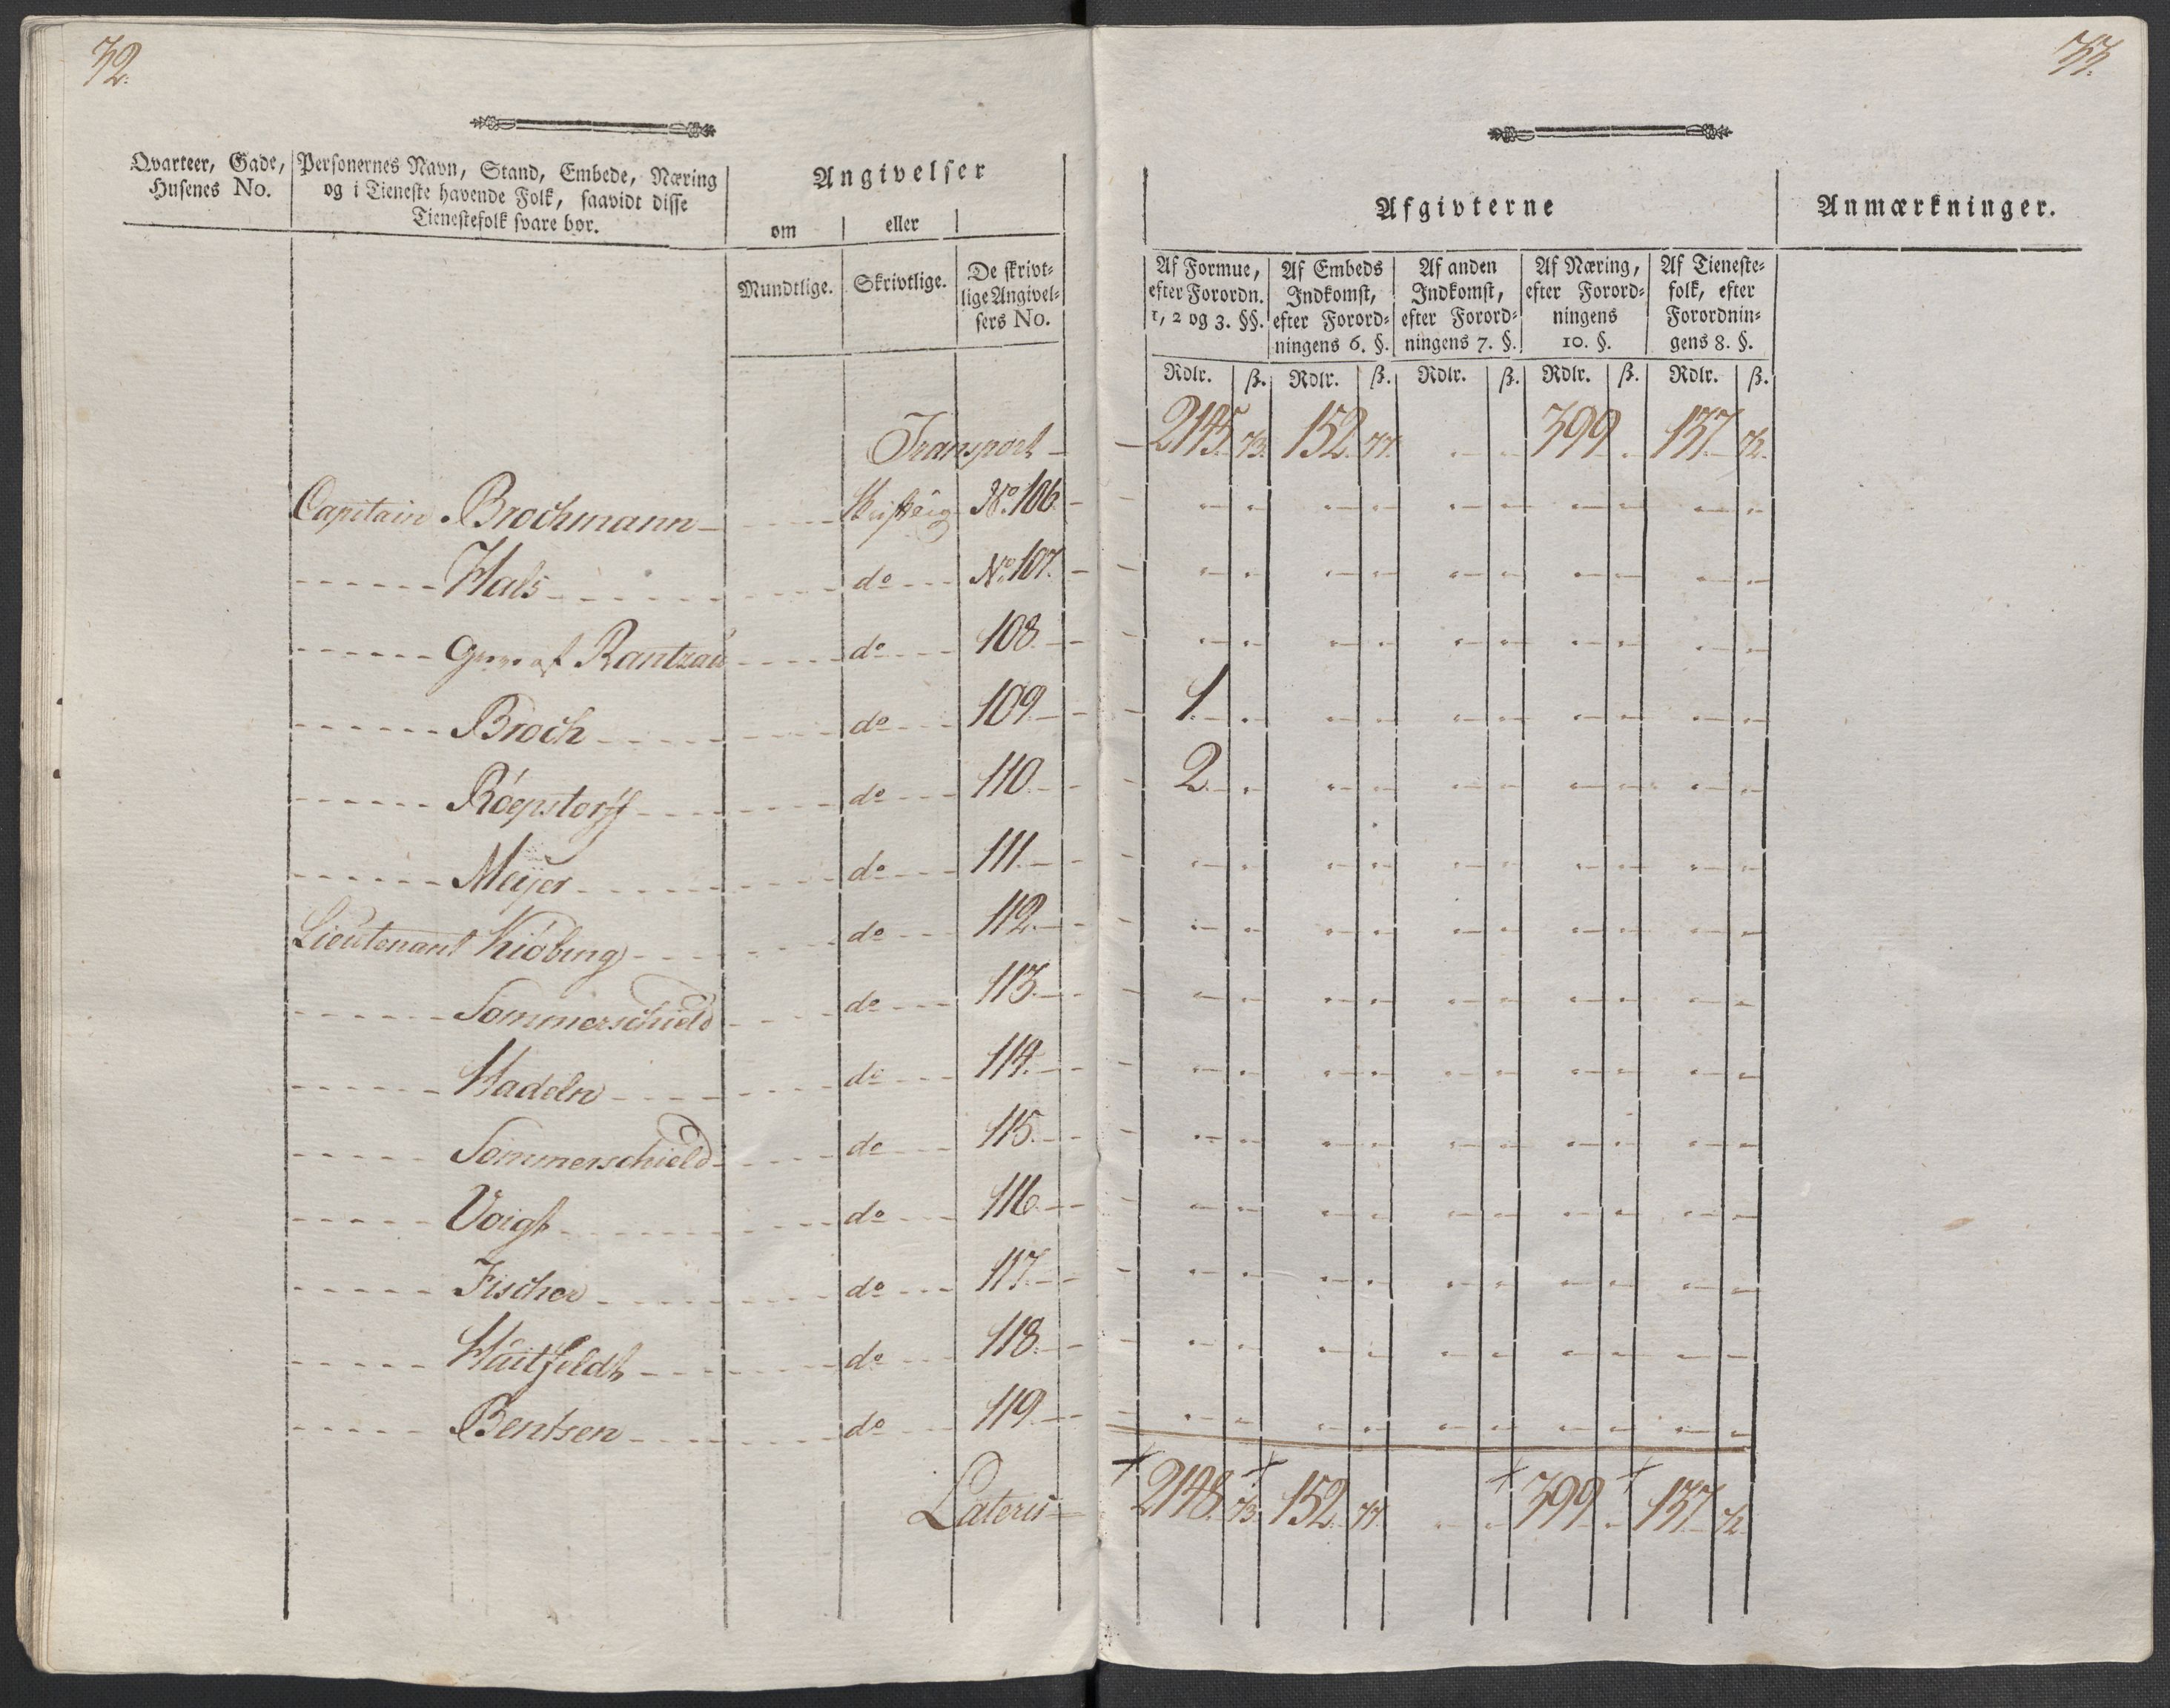 32.
Qvarteer, Gade, Husenes No.
Personernes Navn, Stand, Embede, Næring
og i Tieneste havende Folk, saavidt disse
Tienestefolk svare bør.
Angivelser
om eller
Mundtlige. Skrivtlige. De skrivt-
lige Angivel-
sers No.
Transport
Capitain Brochmann No. 106.
Hals do No. 107.
Rantzau do 108.
Broch do 109.
Röepstorff do 110.
Meijer do 111.
Lieutenant Kiöbing do 112.
Sommerschield do 113.
Hadeln do 114.
Sommerschield do 115.
Voigt do 116.
Fischer do 117.
Huitfeldt do 118.
Bentsen do 119.
Lateris
33.
Afgivterne
Anmærkninger.
Af Formue,
efter Forordn.
1, 2 og 3. §§.
Af Embeds
Indkomst,
efter Forord-
ningens 6. §.
Af anden
Indkomst,
efter Forord-
ningens 7. §.
Af Næring,
efter Forord-
ningens
10. §.
Af Tieneste-
folk, efter
Forordnin-
gens 8. §.
Rdlr. ß. Rdlr. ß. Rdlr. ß. Rdlr. ß. Rdlr. ß.
2145. 73. 152. 77. 399. 137. 72.
1.
2.
2148. 73. 152. 77. 399. 137. 72.